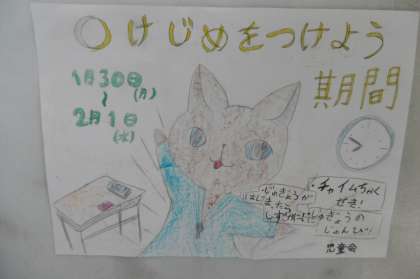 ○けじめをつけよう
期間
1月30日(月)
～
2月1日(水)
・じゅぎょうが
はじまったら
しずかに!
・チャイムちゃく
せき!
・じゅぎょうの
じゅんび!
児童会